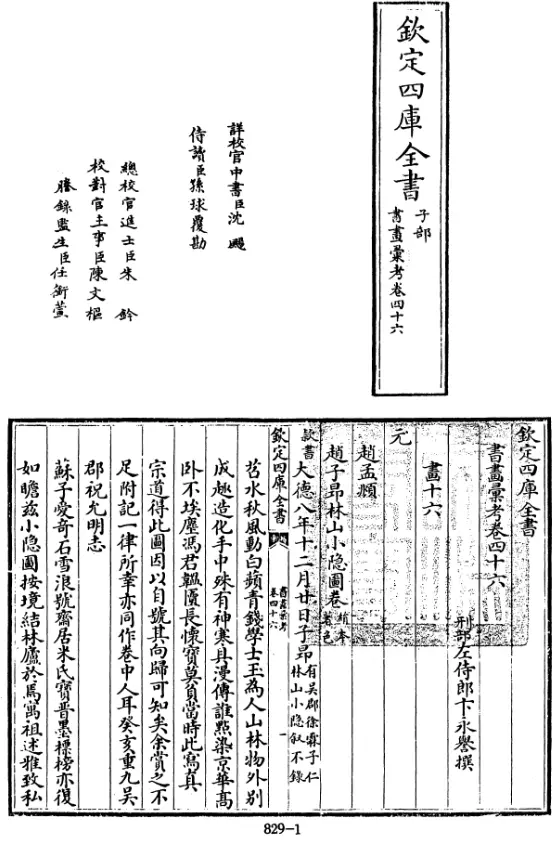 欽定四庫全書
子部
書畫彙考卷四十六
詳校官中書臣沈颺
侍讀臣孫球覆勘
總校官進士臣朱鈐
校對官主事臣陳文樞
謄錄監生臣任銜蕙
欽定四庫全書
書畫彙考卷四十六
刑部左侍郎卞永譽撰
畫十六
元
趙孟頫
趙子昂林山小隱圖卷
絹本
著色
款書大德八年十二月廿日子昂
有吳郡徐霖子仁
林山小隱敘不錄
欽定四庫全書
書畫彙考
卷四十六
一
苕水秋風動白蘋青錢學士玉為人山林物外別
成趣造化手中殊有神寒具漫傳誰點染京華高
卧不埃塵馮君韞匵長懷寶莫負當時此寫真
宗道得此圖因以自號其向歸可知矣余賞之不
足附記一律所幸亦同作卷中人耳癸亥重九吳
郡祝允明志
蘇子愛奇石雪浪號齋居米氏寶晉墨標榜亦復
如瞻兹小隱圖按境結林廬於焉寓祖述雅致私
829-1